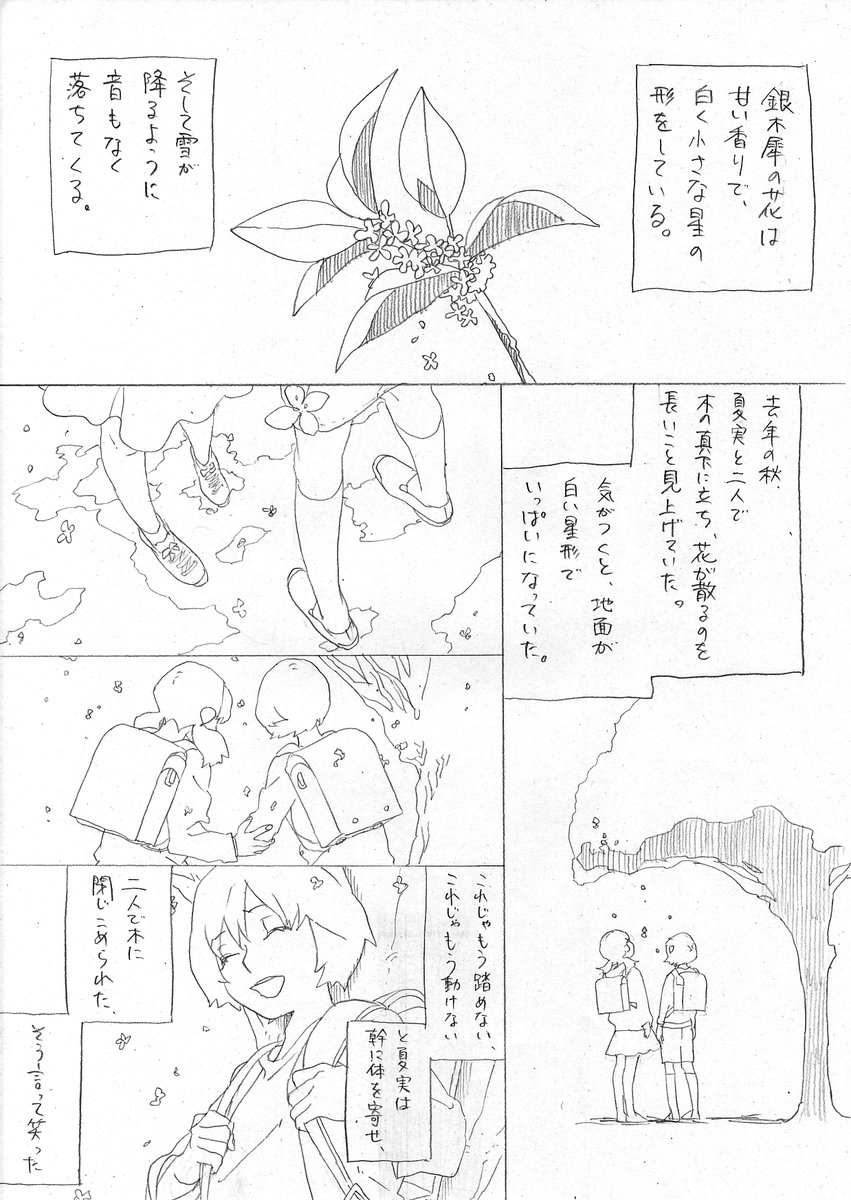 銀木犀の花は
甘い香りで、
白く小さな星の
形をしている。
そして雪が
降るように
音もなく
落ちてくる。
去年の秋、
夏実と二人で
木の真下に立ち、花が散るのを
長いこと見上げていた。
気がつくと、地面が
白い星形で
いっぱいになっていた。
これじゃもう踏めない、
これじゃもう動けない
と夏実は
幹に体を寄せ、
二人で木に
閉じこめられた、
そう言って笑った